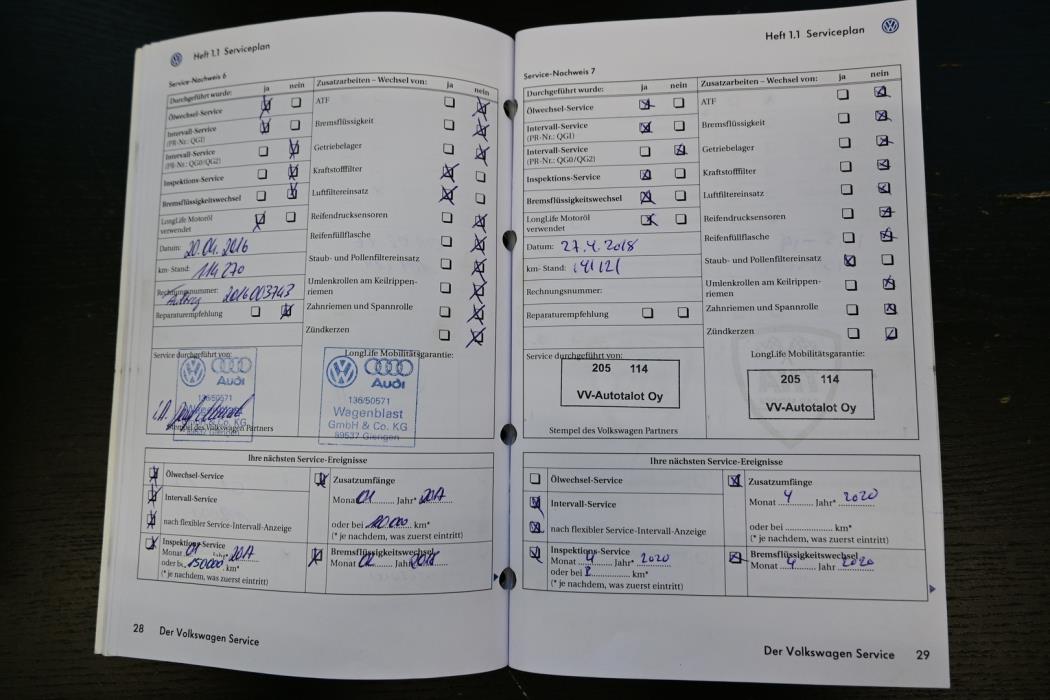 Heft 1.1 Serviceplan
Service-Nachweis 6
Durchgeführt wurde: ja nein
Ölwechsel-Service
Intervall-Service
(PR-Nr.: QG1)
Intervall-Service
(PR-Nr.: QG0/QG2)
Inspektions-Service
Bremsflüssigkeitswechsel
LongLife Motoröl
verwendet
Datum: 20.04.2016
km- Stand: 114 270
Rechnungsnummer: 2016003743
Reparaturempfehlung
Zusatzarbeiten – Wechsel von: ja nein
ATF
Bremsflüssigkeit
Getriebelager
Kraftstofffilter
Luftfiltereinsatz
Reifendrucksensoren
Reifenfüllflasche
Staub- und Pollenfiltereinsatz
Umlenkrollen am Keilrippen-
riemen
Zahnriemen und Spannrolle
Zündkerzen
Service durchgeführt von:
Audi
136/50571
Wagenblast
GmbH & Co. KG
89537 Giengen
Stempel des Volkswagen Partners
LongLife Mobilitätsgarantie:
Audi
136/50571
Wagenblast
GmbH & Co. KG
89537 Giengen
Ihre nächsten Service-Ereignisse
Ölwechsel-Service
Intervall-Service
nach flexibler Service-Intervall-Anzeige
Inspektions-Service
Monat 01 Jahr* 2017
oder bei 150000 km*
(* je nachdem, was zuerst eintritt)
Zusatzumfänge
Monat 01 Jahr* 2017
oder bei km*
(* je nachdem, was zuerst eintritt)
Bremsflüssigkeitswechsel
Monat 02 Jahr 2018
28 Der Volkswagen Service
Heft 1.1 Serviceplan
Service-Nachweis 7
Durchgeführt wurde: ja nein
Ölwechsel-Service
Intervall-Service
(PR-Nr.: QG1)
Intervall-Service
(PR-Nr.: QG0/QG2)
Inspektions-Service
Bremsflüssigkeitswechsel
LongLife Motoröl
verwendet
Datum: 27.4.2018
km- Stand: 141121
Rechnungsnummer:
Reparaturempfehlung
Zusatzarbeiten – Wechsel von: ja nein
ATF
Bremsflüssigkeit
Getriebelager
Kraftstofffilter
Luftfiltereinsatz
Reifendrucksensoren
Reifenfüllflasche
Staub- und Pollenfiltereinsatz
Umlenkrollen am Keilrippen-
riemen
Zahnriemen und Spannrolle
Zündkerzen
Service durchgeführt von:
205 114
VV-Autotalot Oy
Stempel des Volkswagen Partners
LongLife Mobilitätsgarantie:
205 114
VV-Autotalot Oy
Ihre nächsten Service-Ereignisse
Ölwechsel-Service
Intervall-Service
nach flexibler Service-Intervall-Anzeige
Inspektions-Service
Monat 4 Jahr* 2020
oder bei km*
(* je nachdem, was zuerst eintritt)
Zusatzumfänge
Monat 4 Jahr* 2020
oder bei km*
(* je nachdem, was zuerst eintritt)
Bremsflüssigkeitswechsel
Monat 4 Jahr 2020
Der Volkswagen Service 29